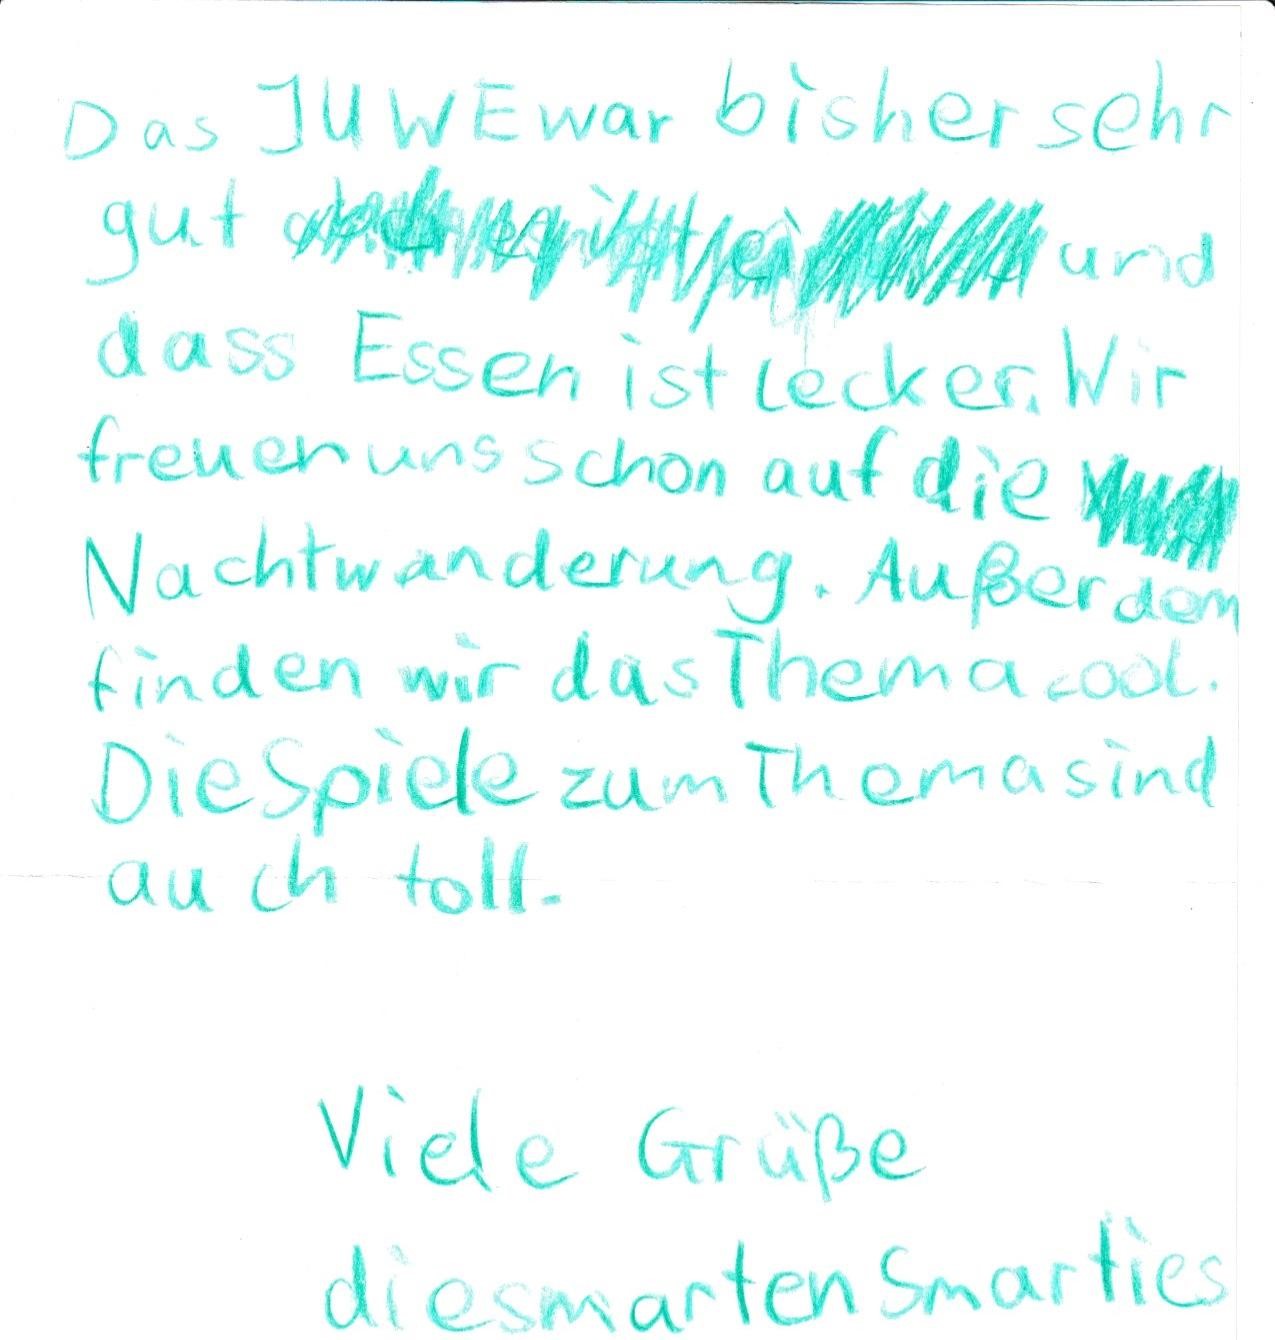 Das JUWE war bisher sehr
gut und
dass Essen ist lecker. Wir
freuen uns schon auf die
Nachtwanderung. Außerdem
finden wir das Thema cool.
Die Spiele zum Thema sind
auch toll.
Viele Grüße
die smarten Smarties